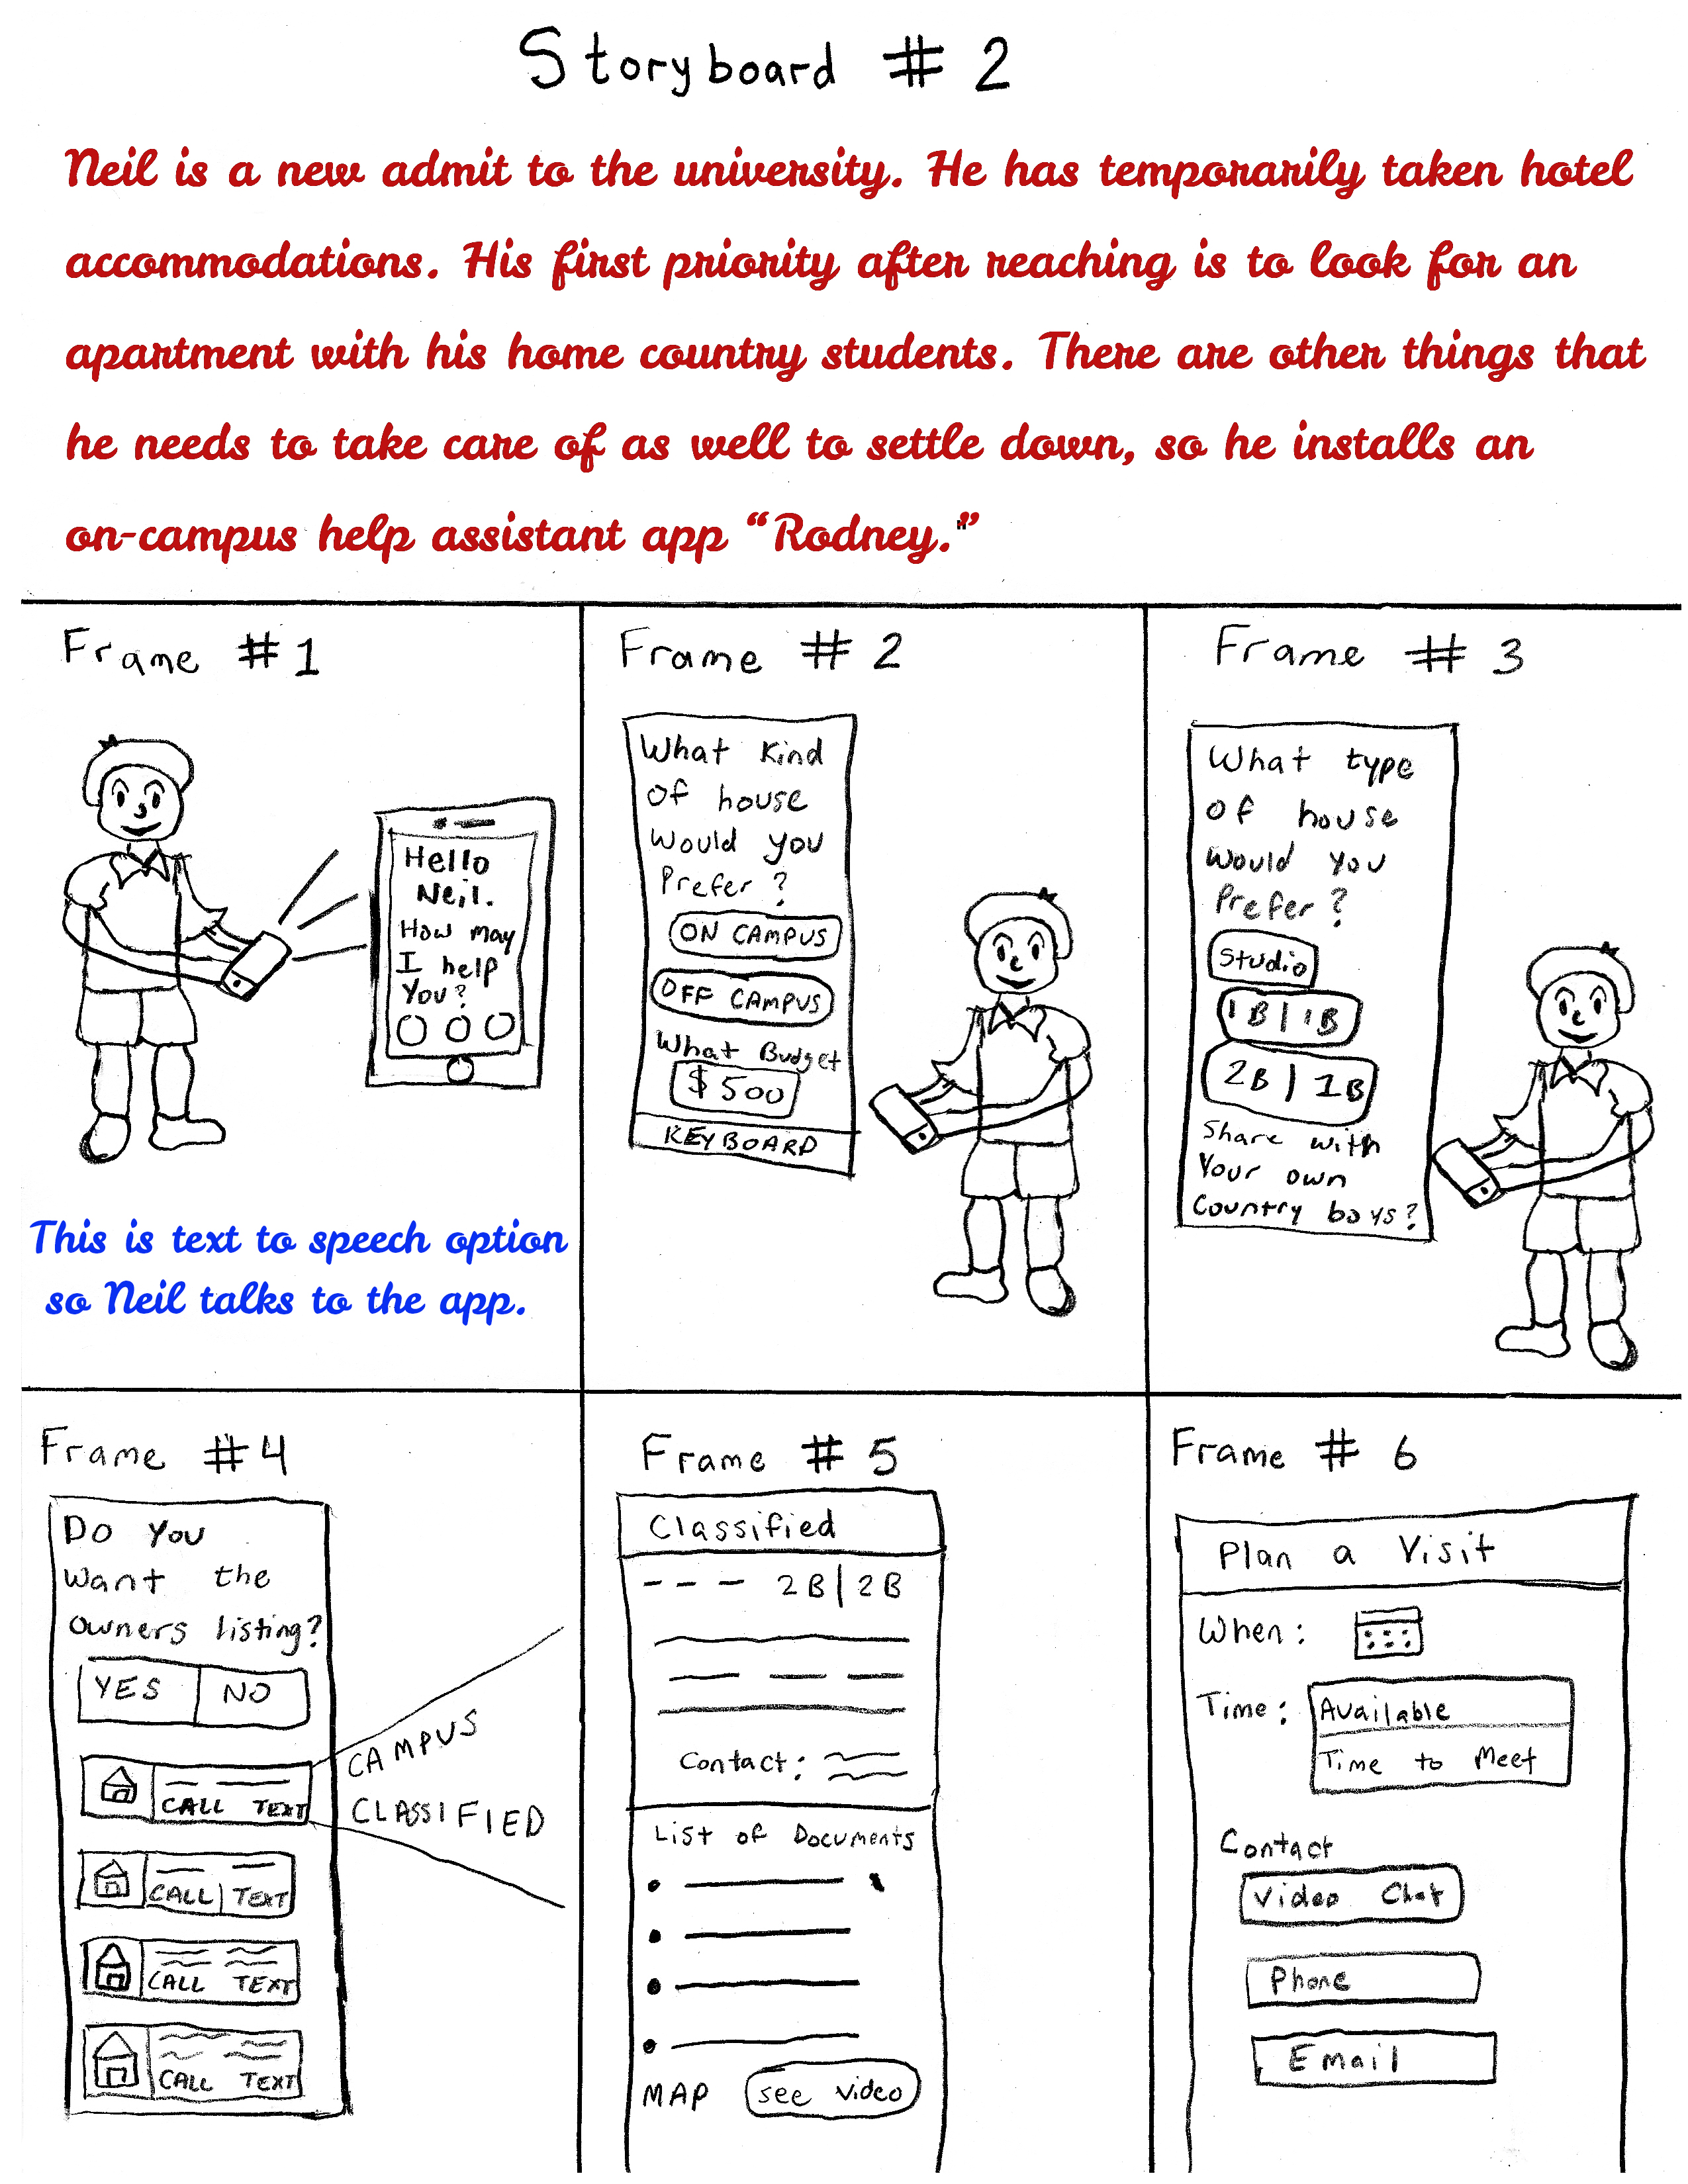 Storyboard # 2
Neil is a new admit to the university. He has temporarily taken hotel
accommodations. His first priority after reaching is to look for an
apartment with his home country students. There are other things that
he needs to take care of as well to settle down, so he installs an
on-campus help assistant app “Rodney.”
Frame # 1
Hello
Neil.
How may
I help
You?
This is text to speech option
so Neil talks to the app.
Frame # 2
What Kind
Of house
Would you
Prefer ?
ON CAMPUS
OFF CAMPUS
What Budget
$ 500
KEYBOARD
Frame # 3
What type
Of house
Would you
Prefer ?
Studio
1B | 1B
2B | 1B
Share with
Your own
Country boys?
Frame # 4
Do You
Want the
Owners listing?
YES NO
CALL TEXT
CALL | TEXT
CALL TEXT
CALL TEXT
CAMPUS
CLASSIFIED
Frame # 5
Classified
--- 2B | 2B
Contact :
List of Documents
MAP see video
Frame # 6
Plan a Visit
When :
Time : Available
Time to Meet
Contact
Video Chat
Phone
Email